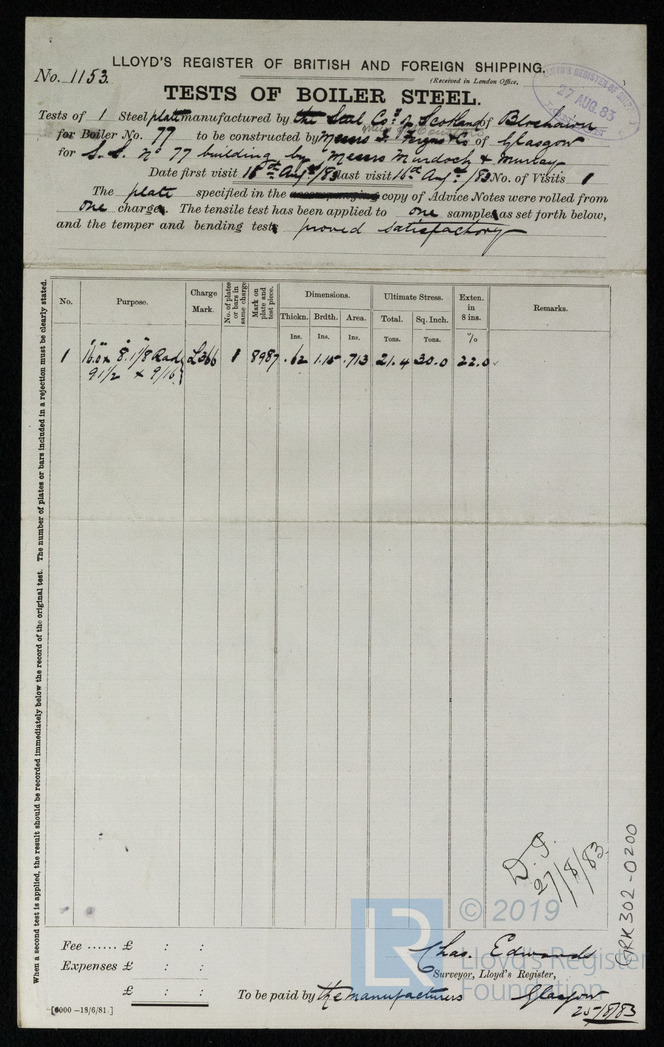 LLOYD'S REGISTER OF BRITISH AND FOREIGN SHIPPING.
No. 1153.
(Received in London Office,
LLOYD'S REGISTER OF
27 AUG. 83
TESTS OF BOILER STEEL.
Tests of 1 Steel plate manufactured by the Steel Coy. of Scotland of Blochairn
for Boiler No. 77 to be constructed by Messrs & Co of Glasgow
for S.S. No 77 building by Messrs Murdoch & Murray
Date first visit 16th Augt /83 last visit 16th Augt /83 No. of Visits 1
The plate specified in the accompanying copy of Advice Notes were rolled from
one charge. The tensile test has been applied to one sample as set forth below,
and the temper and bending tests proved satisfactory
When a second test is applied, the result should be recorded immediately below the record of the original test. The number of plates or bars included in a rejection must be clearly stated.
No. Purpose. Charge Mark. No. of plates or bars in same charge Mark on plate and test piece. Dimensions. Ultimate Stress. Exten. in 8 ins. Remarks.
Thickn. Brdth. Area. Total. Sq. Inch.
Ins. Ins. Ins. Tons. Tons. %
1 16.0 x 8.1 1/8 Rad L366 1 8987 .62 1.15 .713 21.4 30.0 22.0
91 1/2 x 9/16
D.J.
27/8/83.
GRK302-0200
© 2019
Lloyd's Register
Foundation
LR
Fee ...... £ : :
Expenses £ : :
£ : :
Chas. Edwards
Surveyor, Lloyd's Register,
To be paid by the manufacturers Glasgow
25/8/83
[6000 —18/6/81.]